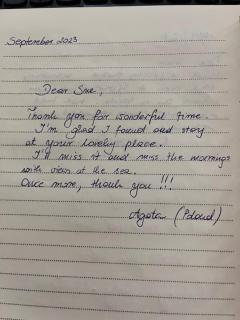 September 2023
Dear Sue,
Thank you for wonderful time.
I'm glad I found and stay
at your lovely place.
I'll miss it and miss the mornings
with view at the sea.
Once more, thank you !!!
Agata (Poland)